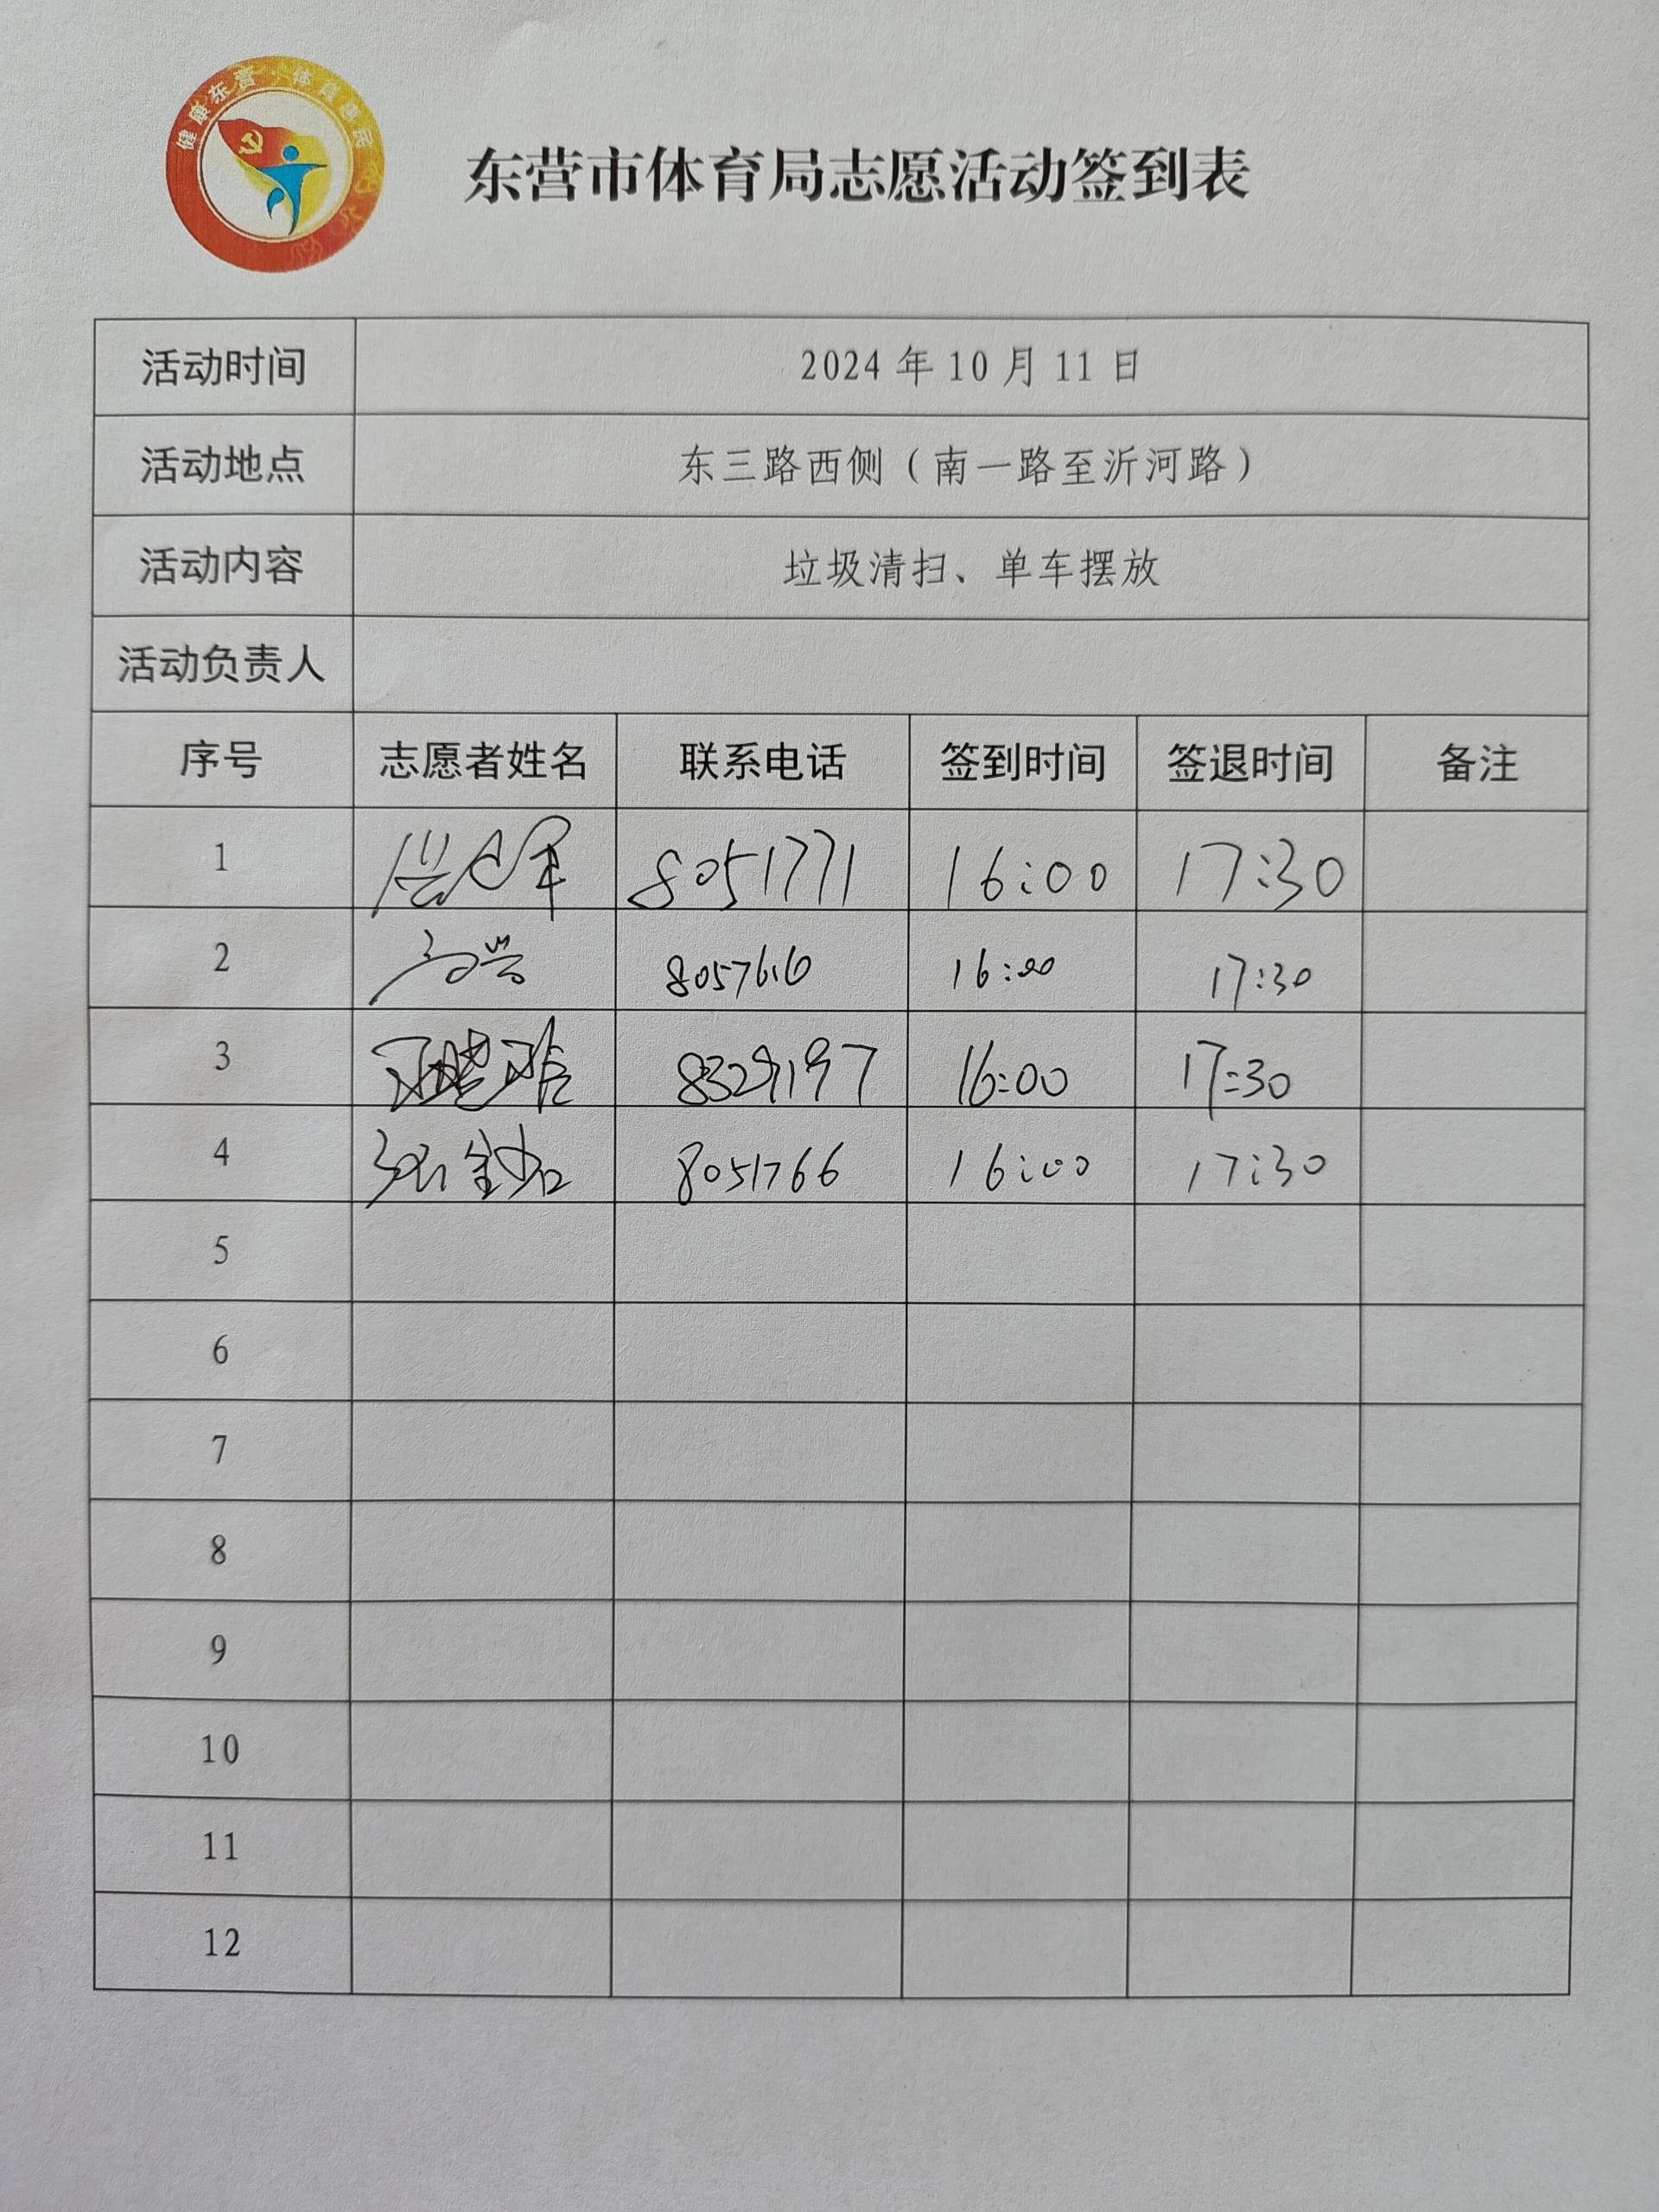 健康东营·体育惠民
东营市体育局志愿活动签到表
活动时间 2024年10月11日
活动地点 东三路西侧（南一路至沂河路）
活动内容 垃圾清扫、单车摆放
活动负责人
序号 志愿者姓名 联系电话 签到时间 签退时间 备注
1 8051771 16:00 17:30
2 8057616 16:00 17:30
3 16:00 17:30
4 8051766 16:00 17:30
5
6
7
8
9
10
11
12